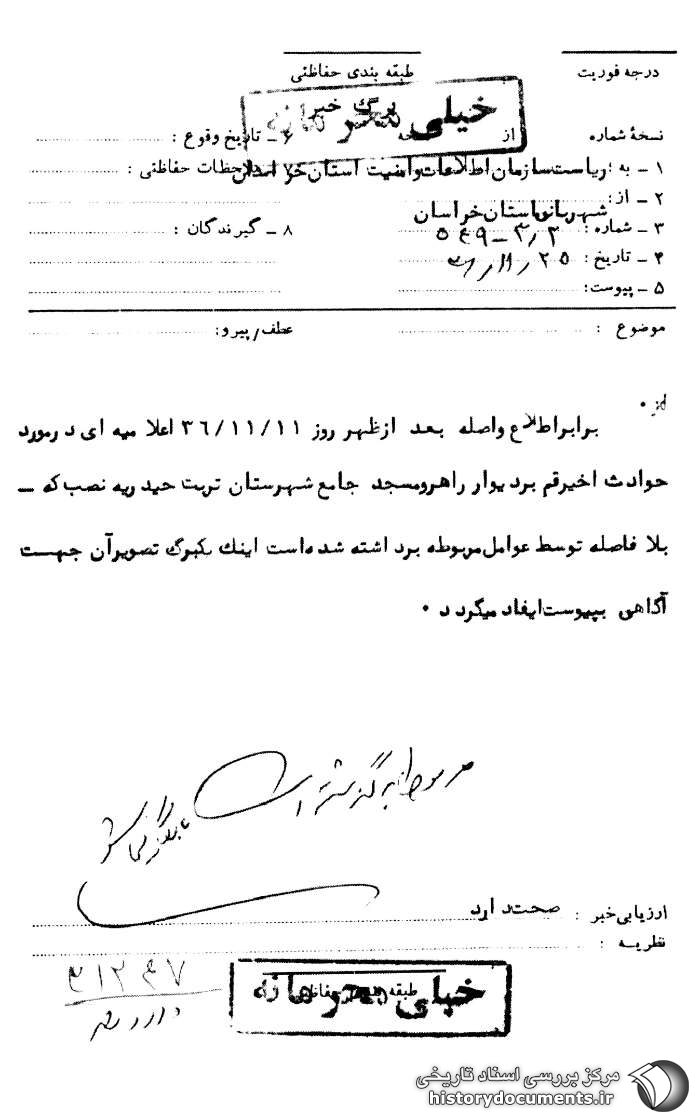 درجه فوریت
طبقه بندی حفاظتی
برگ خبر
خیلی محرمانه
نسخهٔ شماره از نسخه
۶ ـ تاریخ وقوع :
۱ ـ به : ریاست سازمان اطلاعات وامنیت استان خراسان
۷ ـ ملاحظات حفاظتی :
۲ ـ از: شهربانی استان خراسان
۳ ـ شماره :
۸ ـ گیرندگان :
۴ ـ تاریخ :
۵ ـ پیوست:
موضوع :
عطف/پیرو:
برابر اطلاع واصله بعد ازظهر روز ۳۶/۱۱/۱۱ اعلا میه ای درمورد
حوادث اخیرقم بردیوار راهرومسجد جامع شهرستان تربت حیدریه نصب که ـ
بلا فاصله توسط عوامل مربوطه برداشته شده است اینك یکبرگ تصویرآن جهت
آگاهی بپیوست ایفاد میگردد ۰
مربوط به گذشته است
ارزیابی خبر : صحت دارد
نظریه :
طبقه بندی حفاظتی
خیلی محرمانه
مرکز بررسی اسناد تاریخی
historydocuments.ir